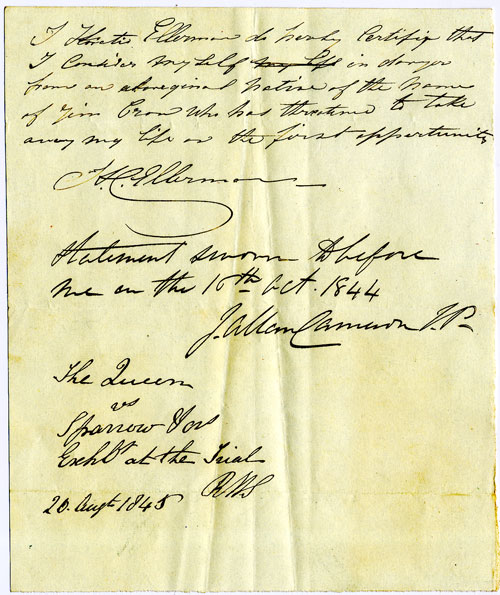 I Horatio Ellerman do hereby Certifiy that
I Consider myself my life in danger
from an aboriginal native of the name
of Jim Crow who has threatened to take
away my life on the first oppertunity
H.C. Ellerman
Statement sworn to before
me on the 16th Oct. 1844
J. Allan Cameron J.P.
The Queen
vs
Sparrow & ors
Exhbt at the Trial
RWS
20. Augt 1845